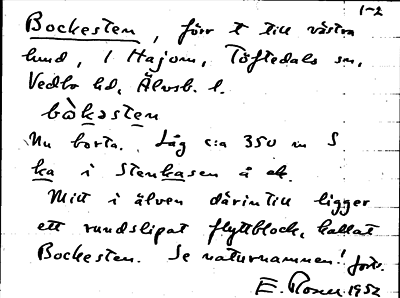 1-2
Bockesten, förr t till västra
lund, i Hajom, Töftedals sn,
Vedbo hd, Älvsb. l.
bòkəsten
Nu borta. Låg c:a 350 m S
ka i Stenkasen å ek.
Mitt i älven därintill ligger
ett rundslipat flyttblock, kallat
Bockesten. Se naturnamnen! forts.
E. 1952